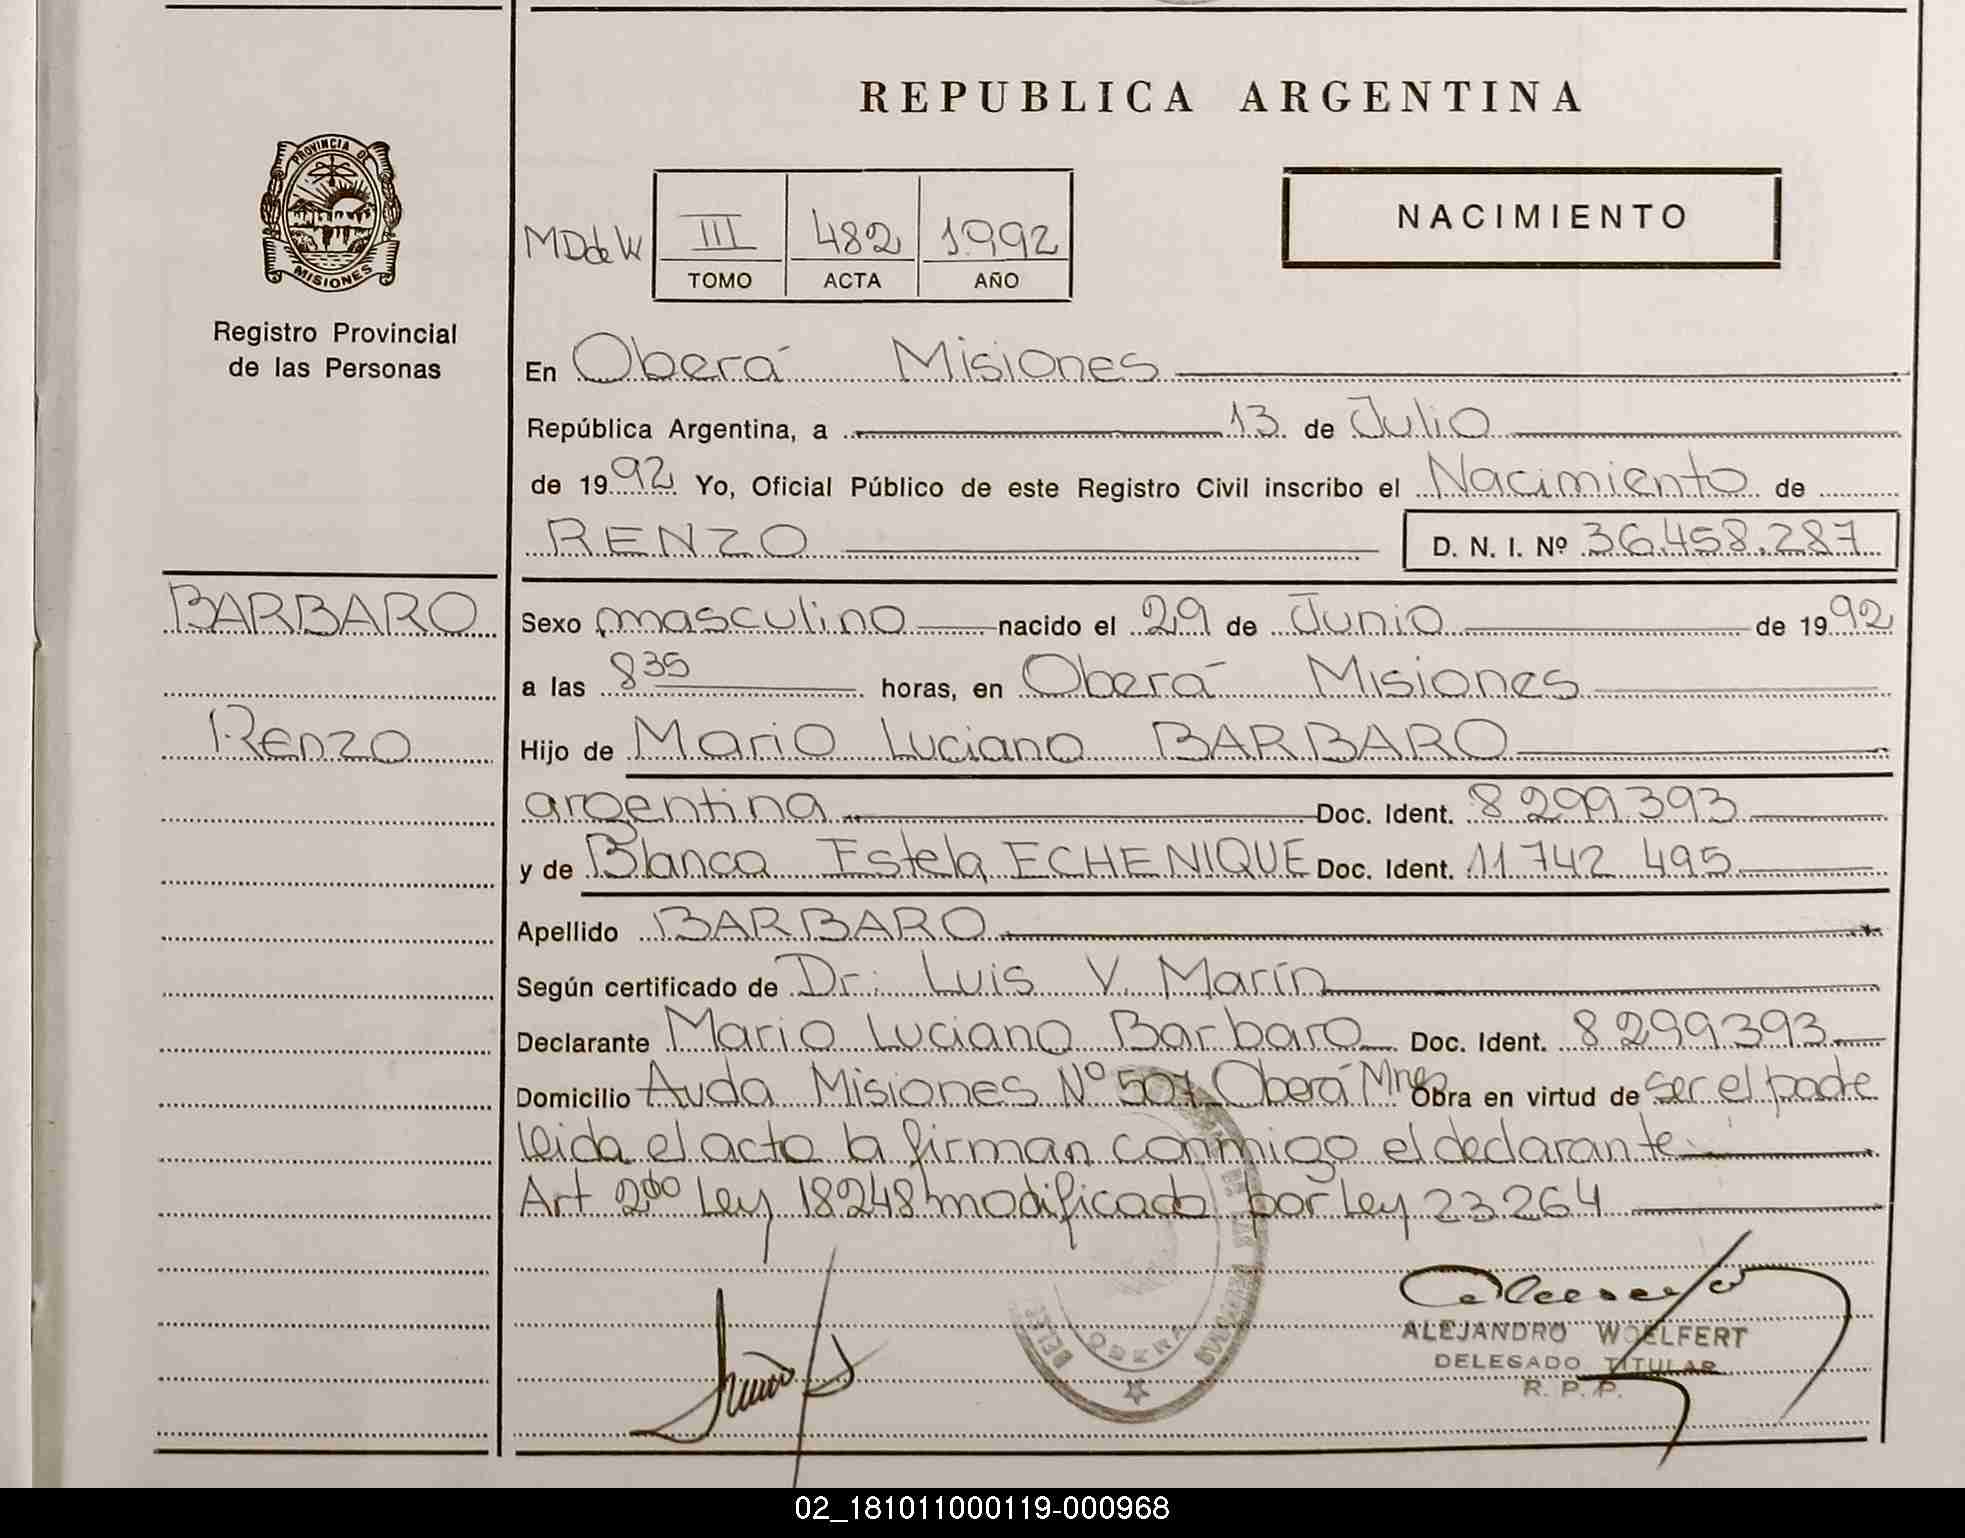 REPUBLICA ARGENTINA
PROVINCIA DE
MISIONES
Registro Provincial
de las Personas
NACIMIENTO
MDdeW III 482 1992
TOMO ACTA AÑO
En Oberá Misiones
República Argentina, a 13 de Julio
de 1992 Yo, Oficial Público de este Registro Civil inscribo el Nacimiento de
RENZO D. N. I. Nº 36.458.287
BARBARO
Renzo
Sexo masculino nacido el 29 de Junio de 1992
a las 8 35 horas, en Oberá Misiones
Hijo de Mario Luciano BARBARO
argentina Doc. Ident. 8299393
y de Blanca Estela ECHENIQUE Doc. Ident. 11 742 495
Apellido BARBARO
Según certificado de Dr. Luis V. Marín
Declarante Mario Luciano Barbaro Doc. Ident. 8299393
Domicilio Avda Misiones Nº 507 Oberá Mnes Obra en virtud de ser el padre
leida el acta la firman conmigo el declarante
Art 2do Ley 18248 modificado por Ley 23264
OBERA
ALEJANDRO WOELFERT
DELEGADO TITULAR
R. P. P.
02_181011000119-000968